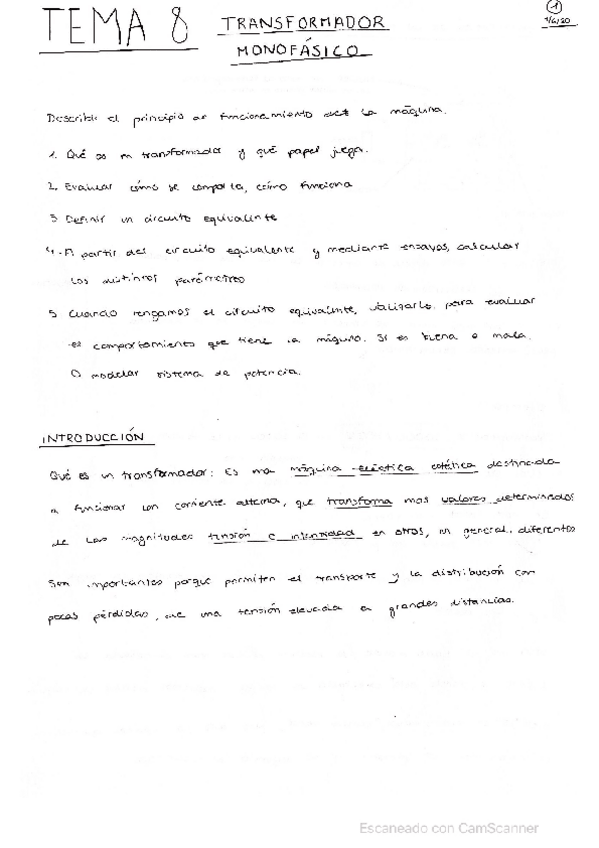 TEMA 8 TRANSFORMADOR
MONOFÁSICO
1
1/6/20
Describir el principio de funcionamiento de la máquina.
1. Qué es un transformador y qué papel juega.
2. Evaluar cómo se comporta, cómo funciona
3. Definir un circuito equivalente
4. A partir del circuito equivalente y mediante ensayos, calcular
los distintos parámetros
5. Cuando tengamos el circuito equivalente, utilizarlo para evaluar
el comportamiento que tiene la máquina. Si es buena o mala.
O modelar sistema de potencia.
INTRODUCCIÓN
Qué es un transformador: Es una máquina eléctrica estática destinada
a funcionar con corriente alterna, que transforma unos valores determinados
de las magnitudes tensión e intensidad en otros, en general, diferentes
Son importantes porque permiten el transporte y la distribución con
pocas pérdidas, de una tensión elevada a grandes distancias.
Escaneado con CamScanner